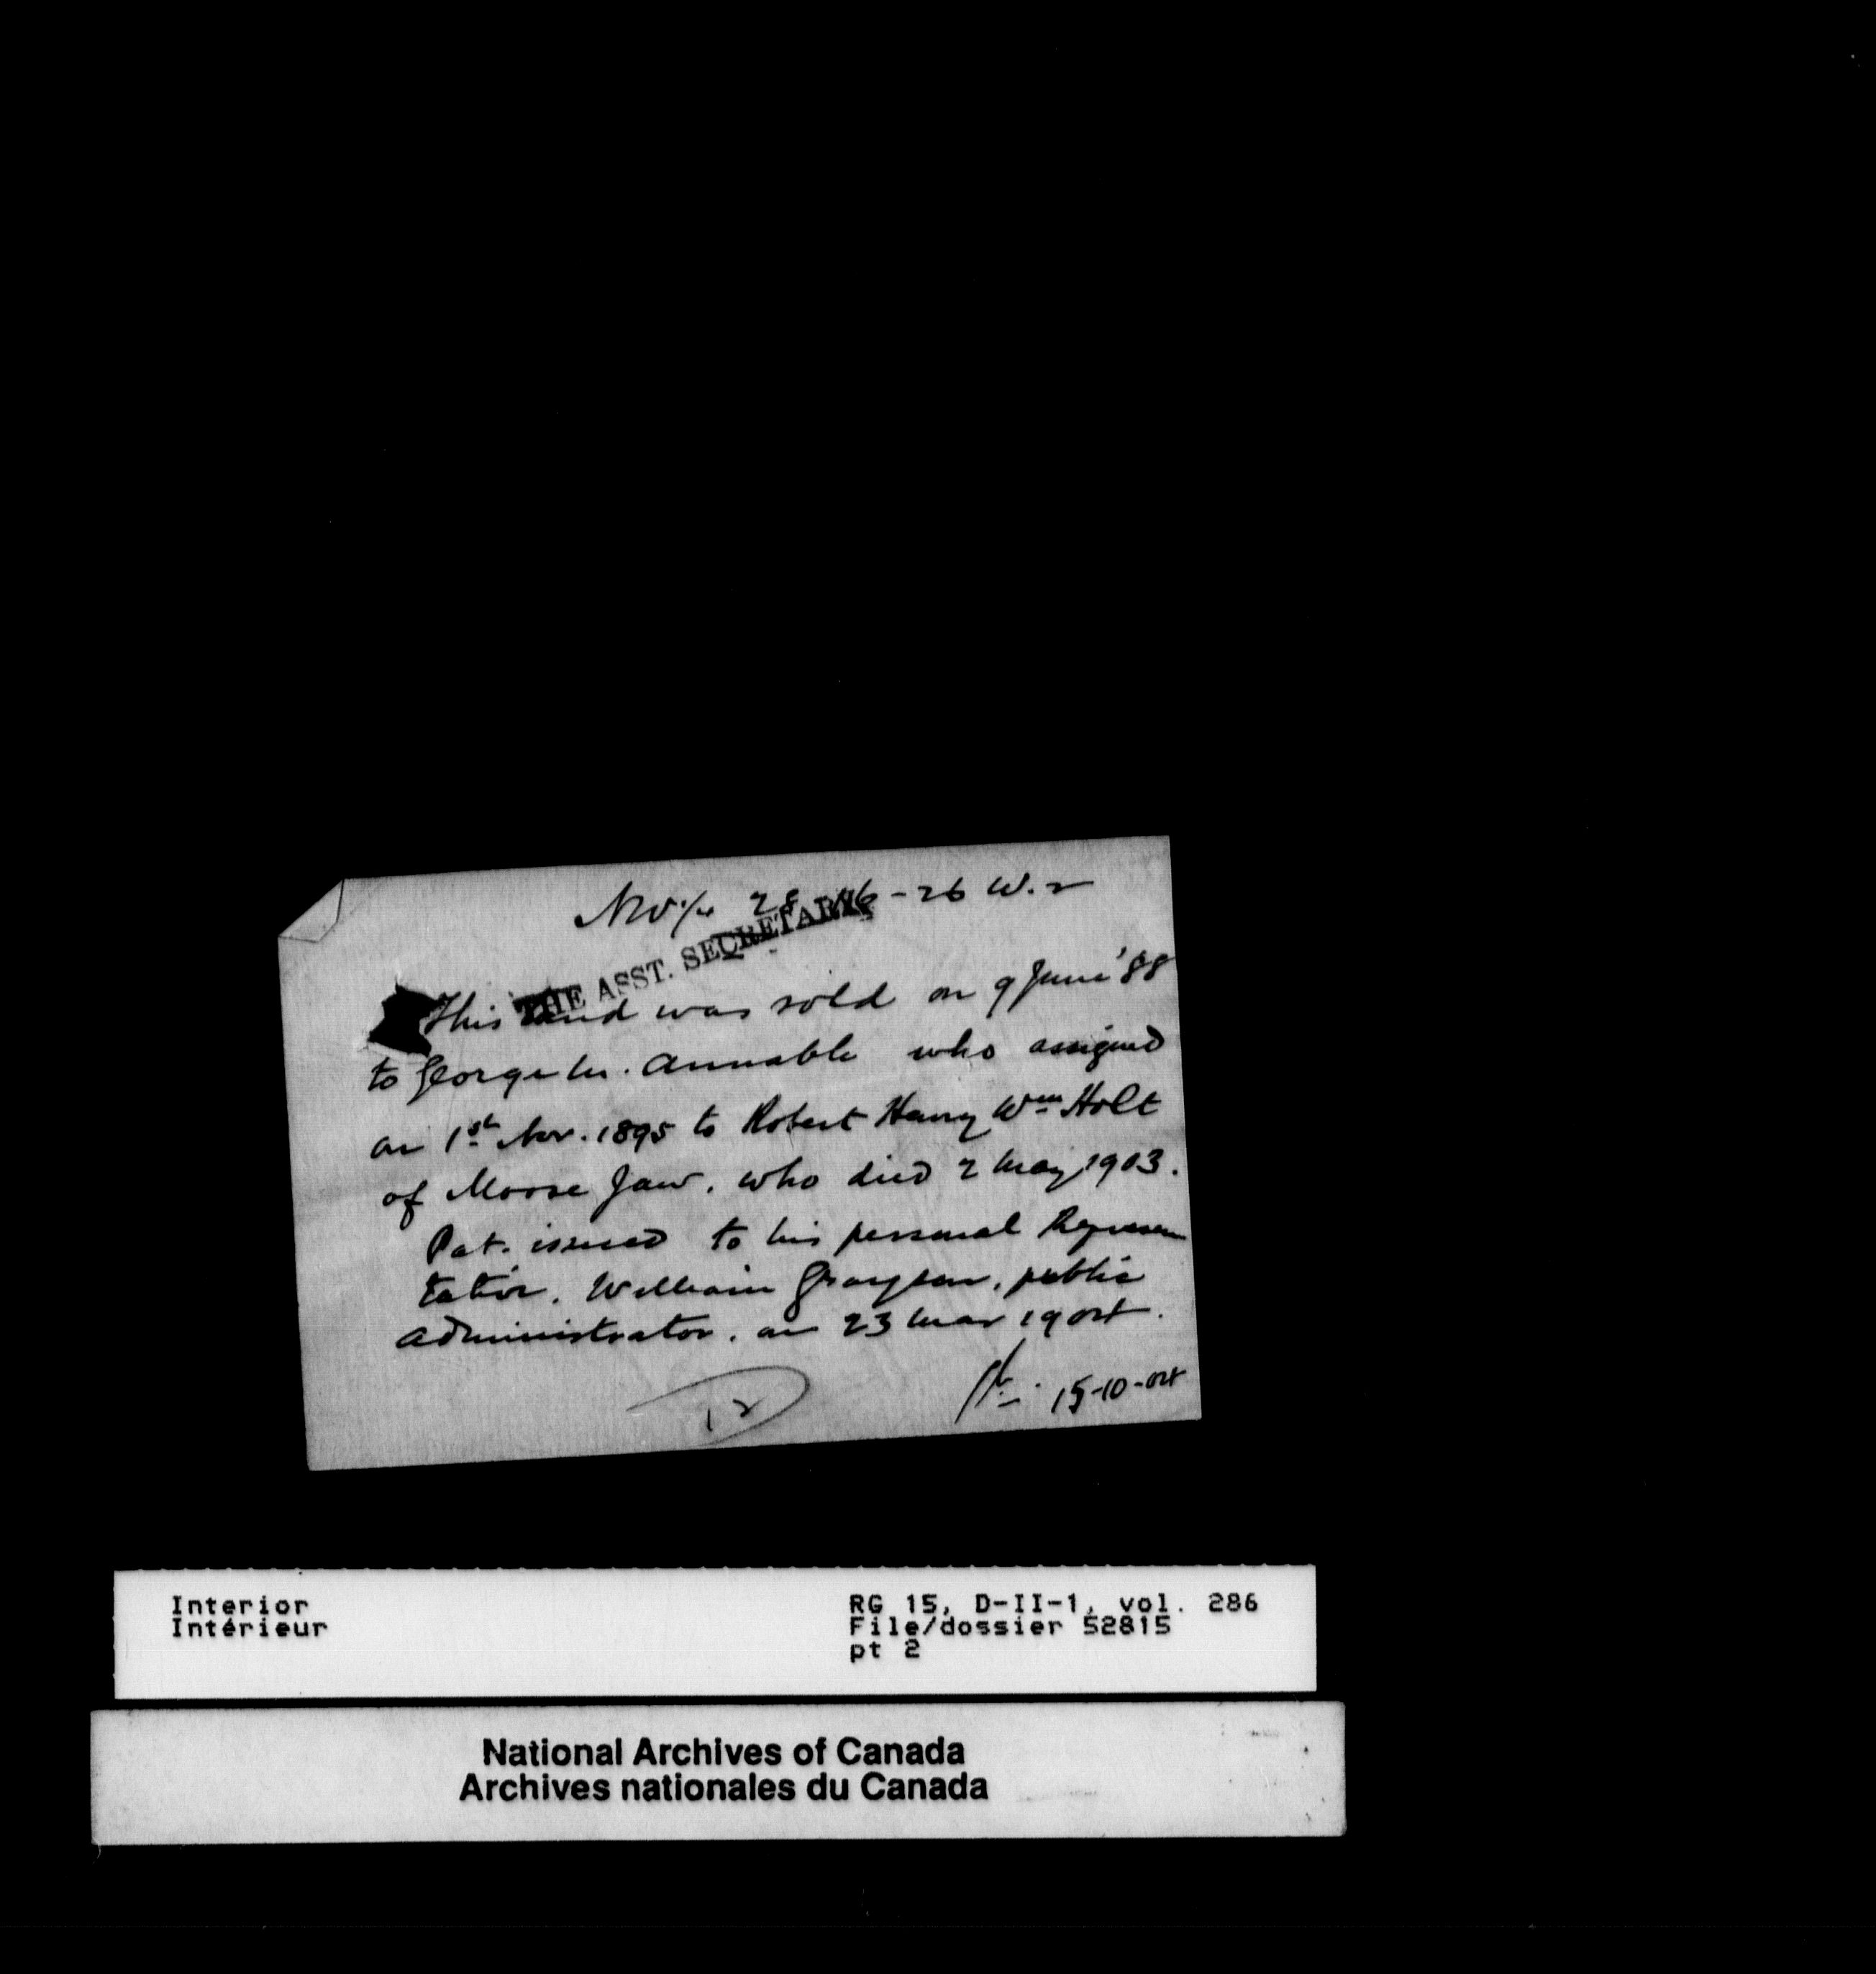 NW¼ 28 16-26 W.2
THE ASST. SECRETARY.
This land was sold on 9 June '88
to George M. Annable who assigned
on 1st Nov. 1895 to Robert Harry Wm Holt
of Moose Jaw, who died 2 May 1903.
Pat. issued to his personal Represen
tative, William Grayson, public
administrator, on 23 Mar 1904.
15-10-04
12
Interior
Intérieur
RG 15, D-II-1, vol. 286
File/dossier 52815
pt 2
National Archives of Canada
Archives nationales du Canada